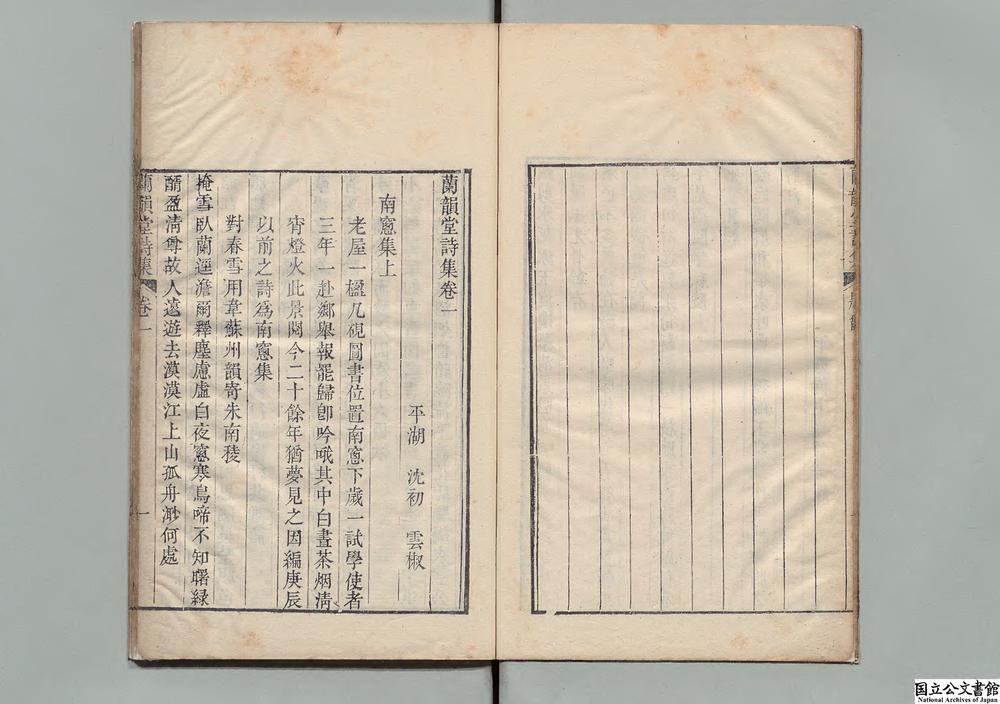 蘭韻堂詩集卷一
平湖 沈初 雲椒
南窻集上
老屋一楹几硯圖書位置南窻下歲一試學使者
三年一赴鄉舉報罷歸卽吟哦其中白晝茶烟淸
宵燈火此景閱今二十餘年猶夢見之因編庚辰
以前之詩爲南窻集
對春雪用韋蘇州韻寄朱南稜
掩雪臥蘭逕澹爾釋塵慮虛白夜窻寒鳥啼不知曙緑
醑盈淸尊故人遠遊去漠漠江上山孤舟渺何處
蘭韻堂詩集 卷一 一
国立公文書館
National Archives of Japan